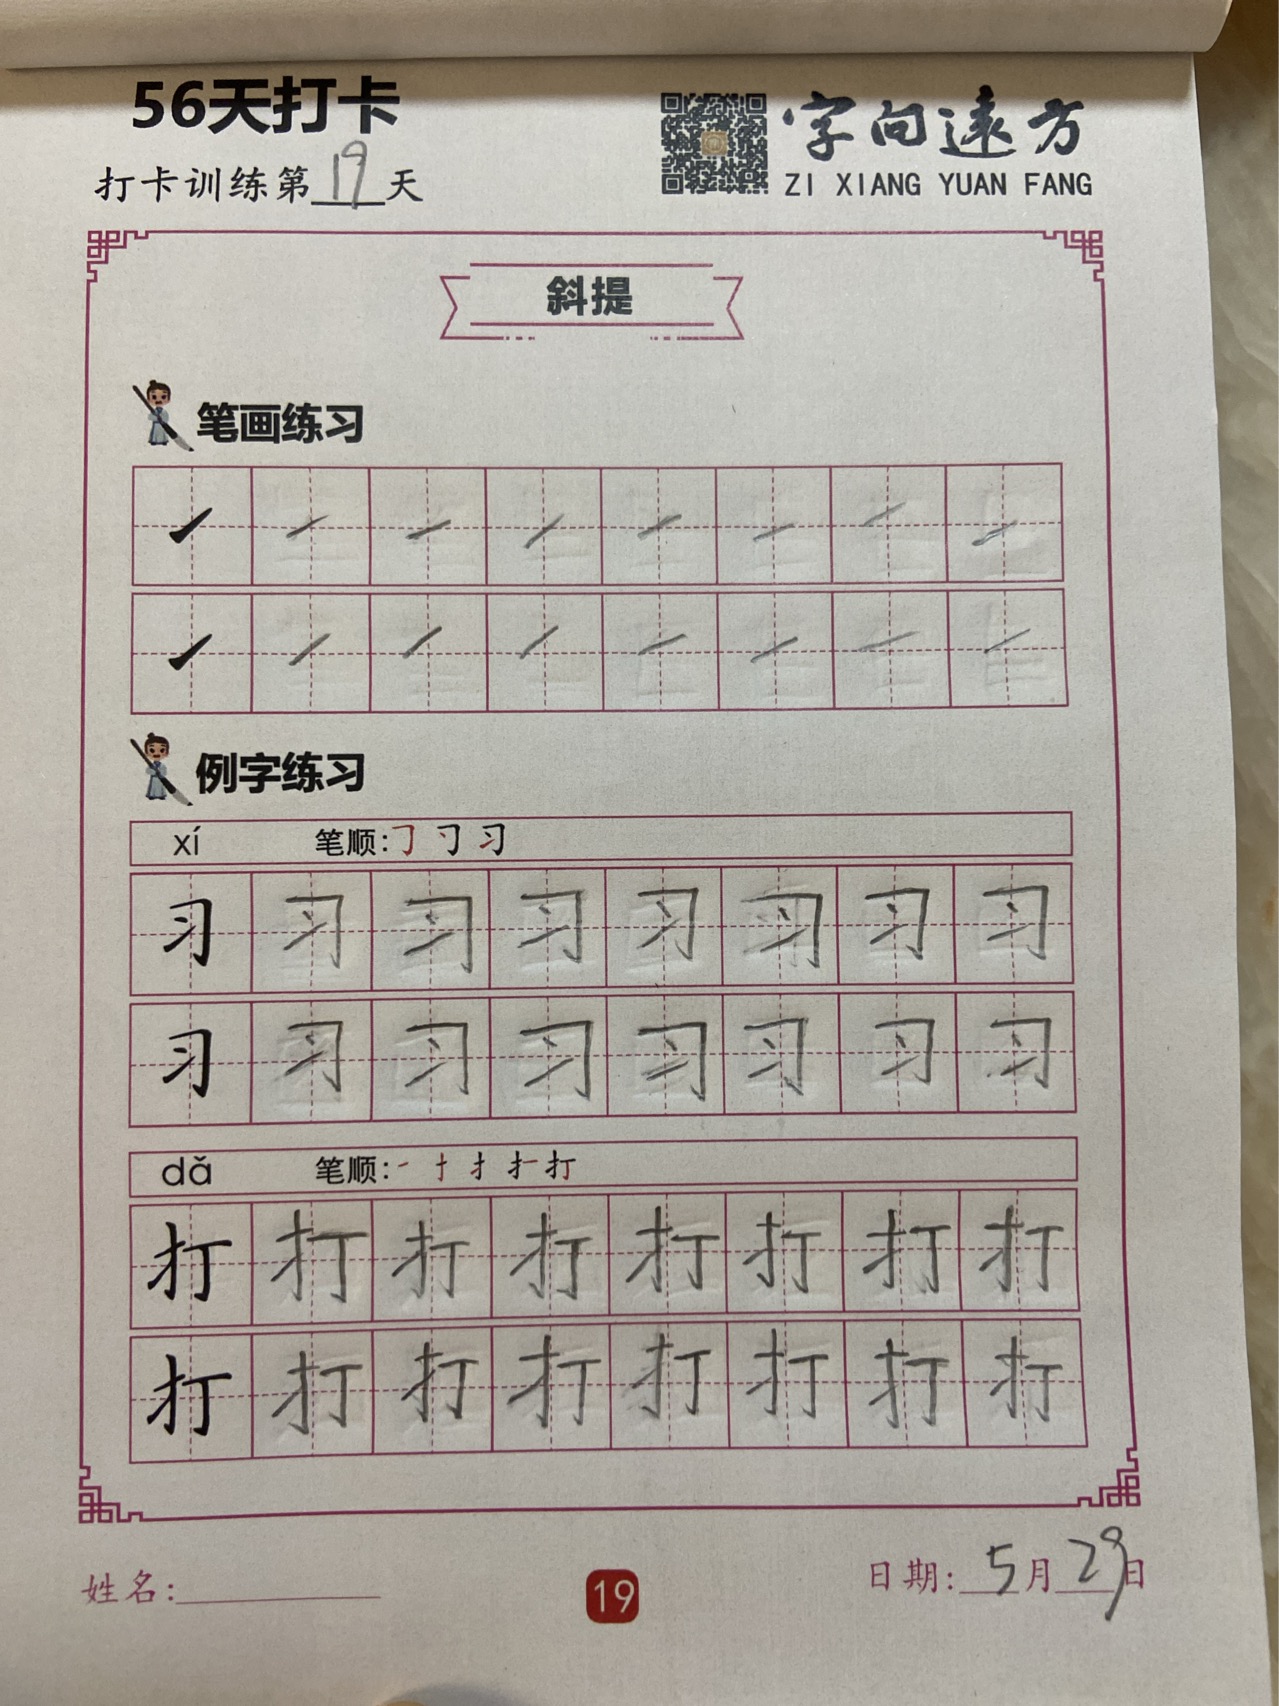 56天打卡
字向远方
打卡训练第19天
ZI XIANG YUAN FANG
斜提
笔画练习
㇀ ㇀ ㇀ ㇀ ㇀ ㇀ ㇀ ㇀
㇀ ㇀ ㇀ ㇀ ㇀ ㇀ ㇀ ㇀
例字练习
xí 笔顺:𠃌 刁 习
习 习 习 习 习 习 习 习
习 习 习 习 习 习 习 习
dǎ 笔顺:一 十 扌 扌一 打
打 打 打 打 打 打 打 打
打 打 打 打 打 打 打 打
姓名:
19
日期: 5月29日